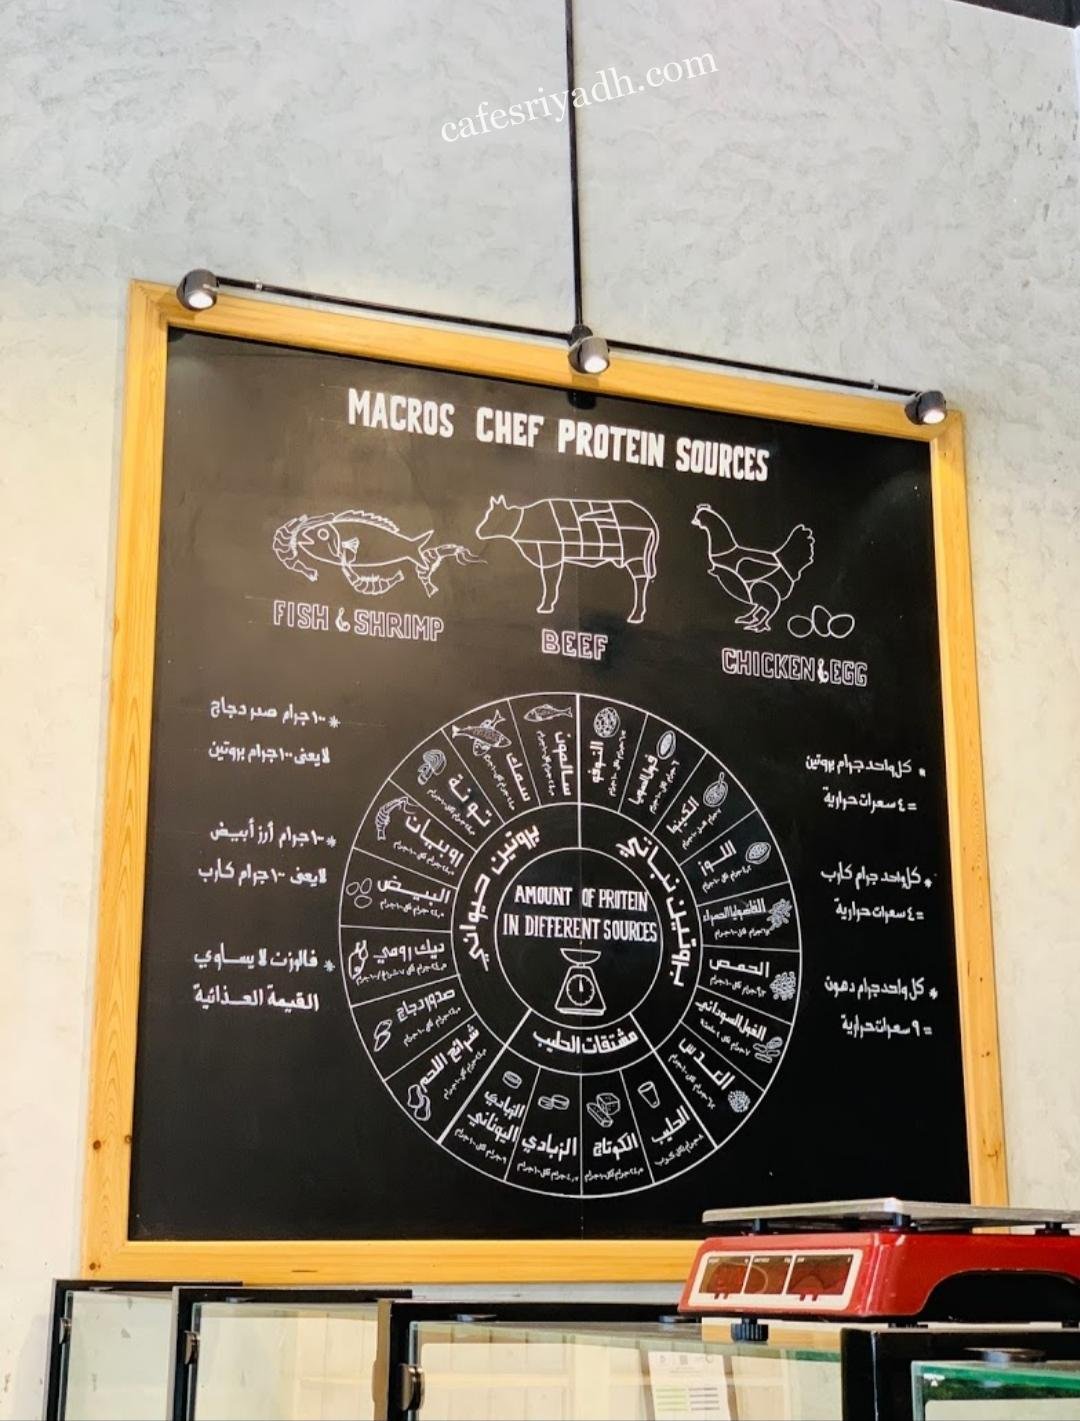 cafesriyadh.com
MACROS CHEF PROTEIN SOURCES
FISH & SHRIMP
BEEF
CHICKEN & EGG
* ١٠٠ جرام صدر دجاج
لايعنى ١٠٠ جرام بروتين
* ١٠٠ جرام أرز أبيض
لايعنى ١٠٠ جرام كارب
* فالوزن لا يساوي
القيمة الغذائية
* كل واحد جرام بروتين
= ٤ سعرات حرارية
* كل واحد جرام كارب
= ٤ سعرات حرارية
* كل واحد جرام دهون
= ٩ سعرات حرارية
AMOUNT OF PROTEIN
IN DIFFERENT SOURCES
بروتين حيواني
سالمون
سمك
تونة
روبيان
البيض
ديك رومي
صدور دجاج
شرائح اللحم
بروتين نباتي
التوفو
فول الصويا
الكينوا
اللوز
الفاصوليا الحمراء
الحمص
الفول السوداني
العدس
مشتقات الحليب
الحليب
الكوتاج
الزبادي
الزبادي
اليوناني